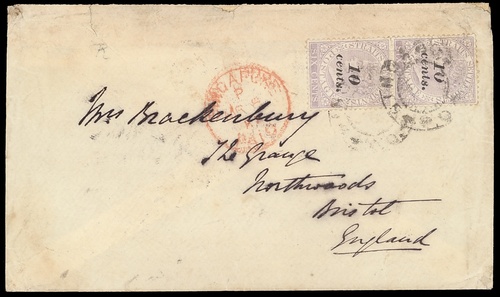 10
cents.
10
cents.
SINGAPORE
P
Mrs Brackenbury
The Grange
Northwoods
Bristol
England